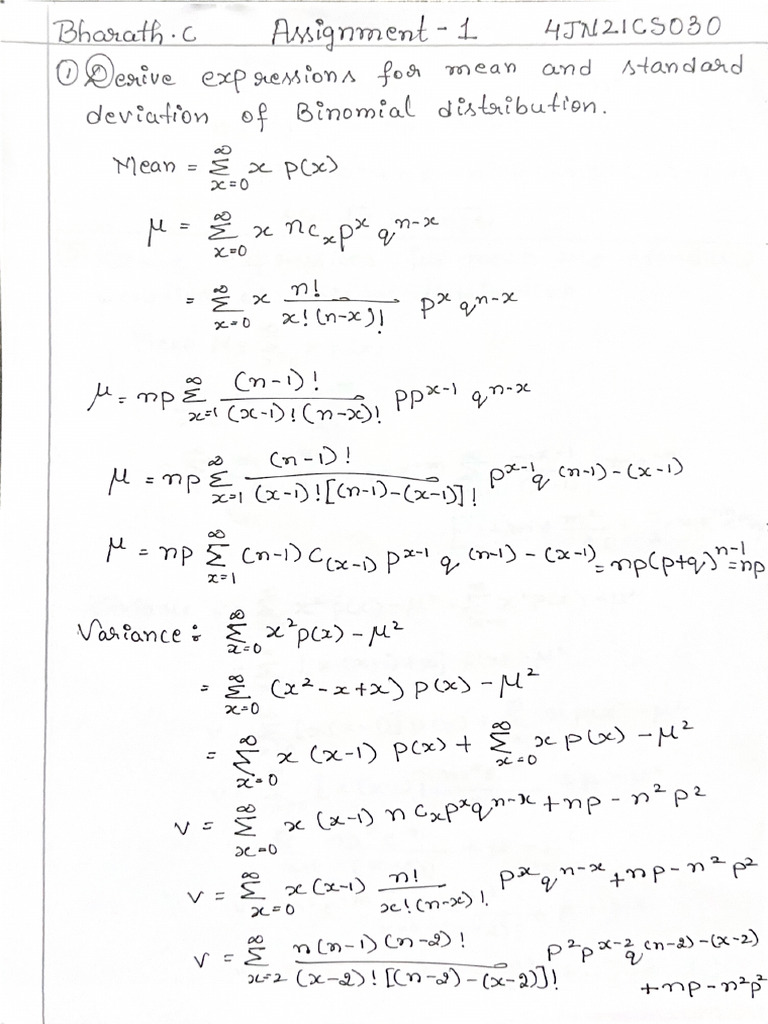 Bharath.C Assignment-1 4JN21CS030
① Derive expressions for mean and standard
deviation of Binomial distribution.
Mean = ∞Σx=0 x p(x)
μ = ∞Σx=0 x ncₓpˣ qⁿ⁻ˣ
= ∞Σx=0 x n!/x!(n-x)! pˣ qⁿ⁻ˣ
μ = np ∞Σx=1 (n-1)!/(x-1)!(n-x)! ppˣ⁻¹ qⁿ⁻ˣ
μ = np ∞Σx=1 (n-1)!/(x-1)![(n-1)-(x-1)]! pˣ⁻¹q⁽ⁿ⁻¹⁾⁻⁽ˣ⁻¹⁾
μ = np ∞Σx=1 (n-1)C₍ₓ₋₁₎ pˣ⁻¹ q⁽ⁿ⁻¹⁾⁻⁽ˣ⁻¹⁾ = np(p+q)ⁿ⁻¹ = np
Variance : ∞Σx=0 x²p(x) - μ²
= ∞Σx=0 (x²-x+x) p(x) - μ²
= ∞Σx=0 x (x-1) p(x) + ∞Σx=0 x p(x) - μ²
v = ∞Σx=0 x (x-1) n cₓpˣqⁿ⁻ˣ + np - n²p²
v = ∞Σx=0 x(x-1) n!/x!(n-x)! pˣqⁿ⁻ˣ + np - n²p²
v = ∞Σx=2 n(n-1)(n-2)!/(x-2)![(n-2)-(x-2)]! p²pˣ⁻²q⁽ⁿ⁻²⁾⁻⁽ˣ⁻²⁾
+np-n²p²